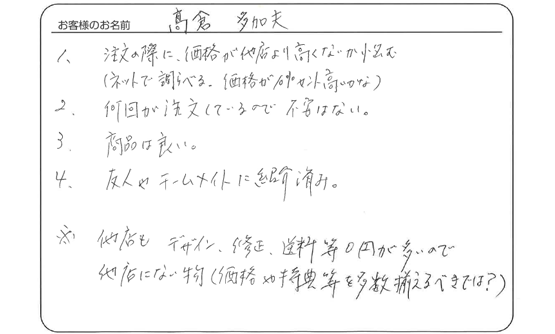 お客様のお名前 髙倉 多加夫
1、 注文の際に、価格が他店より高くないか悩む
(ネットで調らべる、価格が10%セント高いかな)
2、 何回か注文しているので 不安はない。
3、 商品は良い。
4、 友人やチームメイトに紹介済み。
※ 他店も デザイン、修正、送料等0円が多いので
他店にない物(価格や特典等を多数揃えるべきでは?)